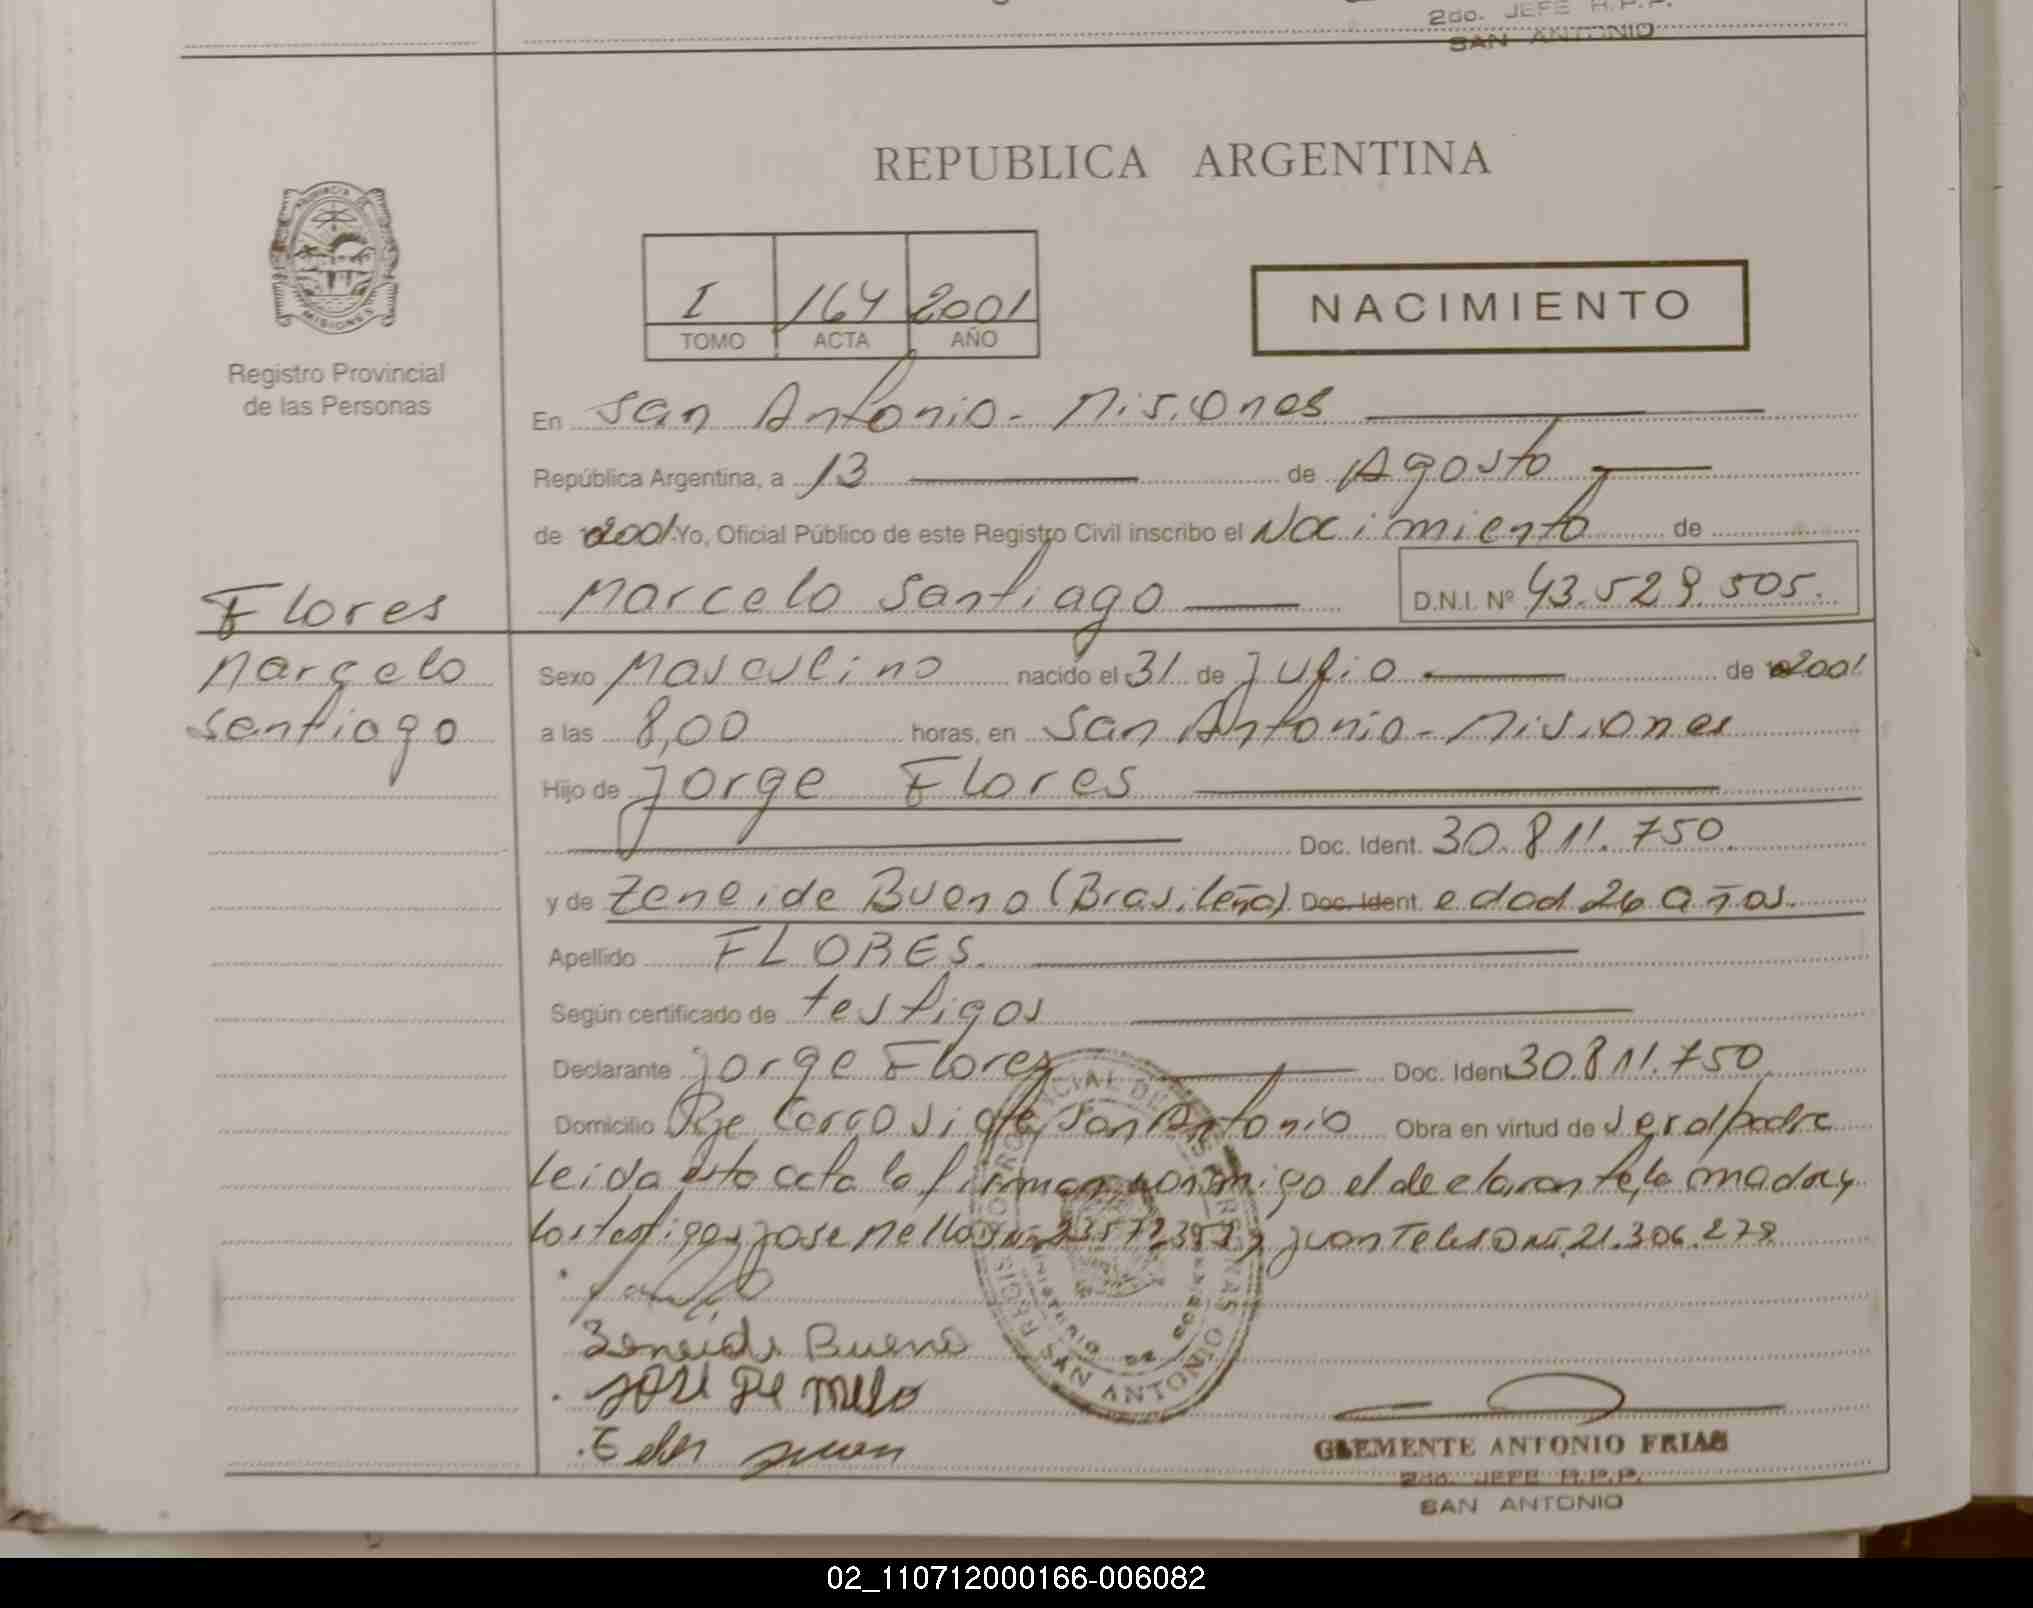 2do. JEFE R.P.P.
SAN ANTONIO
REPUBLICA ARGENTINA
PROVINCIA DE
MISIONES
Registro Provincial
de las Personas
I 164 2001
TOMO ACTA AÑO
NACIMIENTO
En San Antonio - Misiones
República Argentina, a 13 de Agosto
de 2001 Yo, Oficial Público de este Registro Civil inscribo el Nacimiento de
Marcelo Santiago D.N.I. Nº 43.529.505.
Flores
Marcelo
Santiago
Sexo Masculino nacido el 31 de Julio de 2001
a las 8,00 horas, en San Antonio - Misiones
Hijo de Jorge Flores
Doc. Ident. 30.811.750.
y de Zeneide Bueno (Brasileña) Doc. Ident. edad 26 años.
Apellido FLORES.
Según certificado de testigos
Declarante Jorge Flores Doc. Ident 30.811.750
Domicilio Pje San Antonio Obra en virtud de ser el padre
Leida esta acta la firman conmigo el declarante, la madre y
los testigos Jose Mello DNI 23572 y Juan Teles DNI. 21.306.278
Zeneide Bueno
José De Melo
juan
REGISTRO PROVINCIAL DE LAS PERSONAS
MINISTERIO DE GOBIERNO
SAN ANTONIO
CLEMENTE ANTONIO FRIAS
2do. JEFE R.P.P.
SAN ANTONIO
02_110712000166-006082